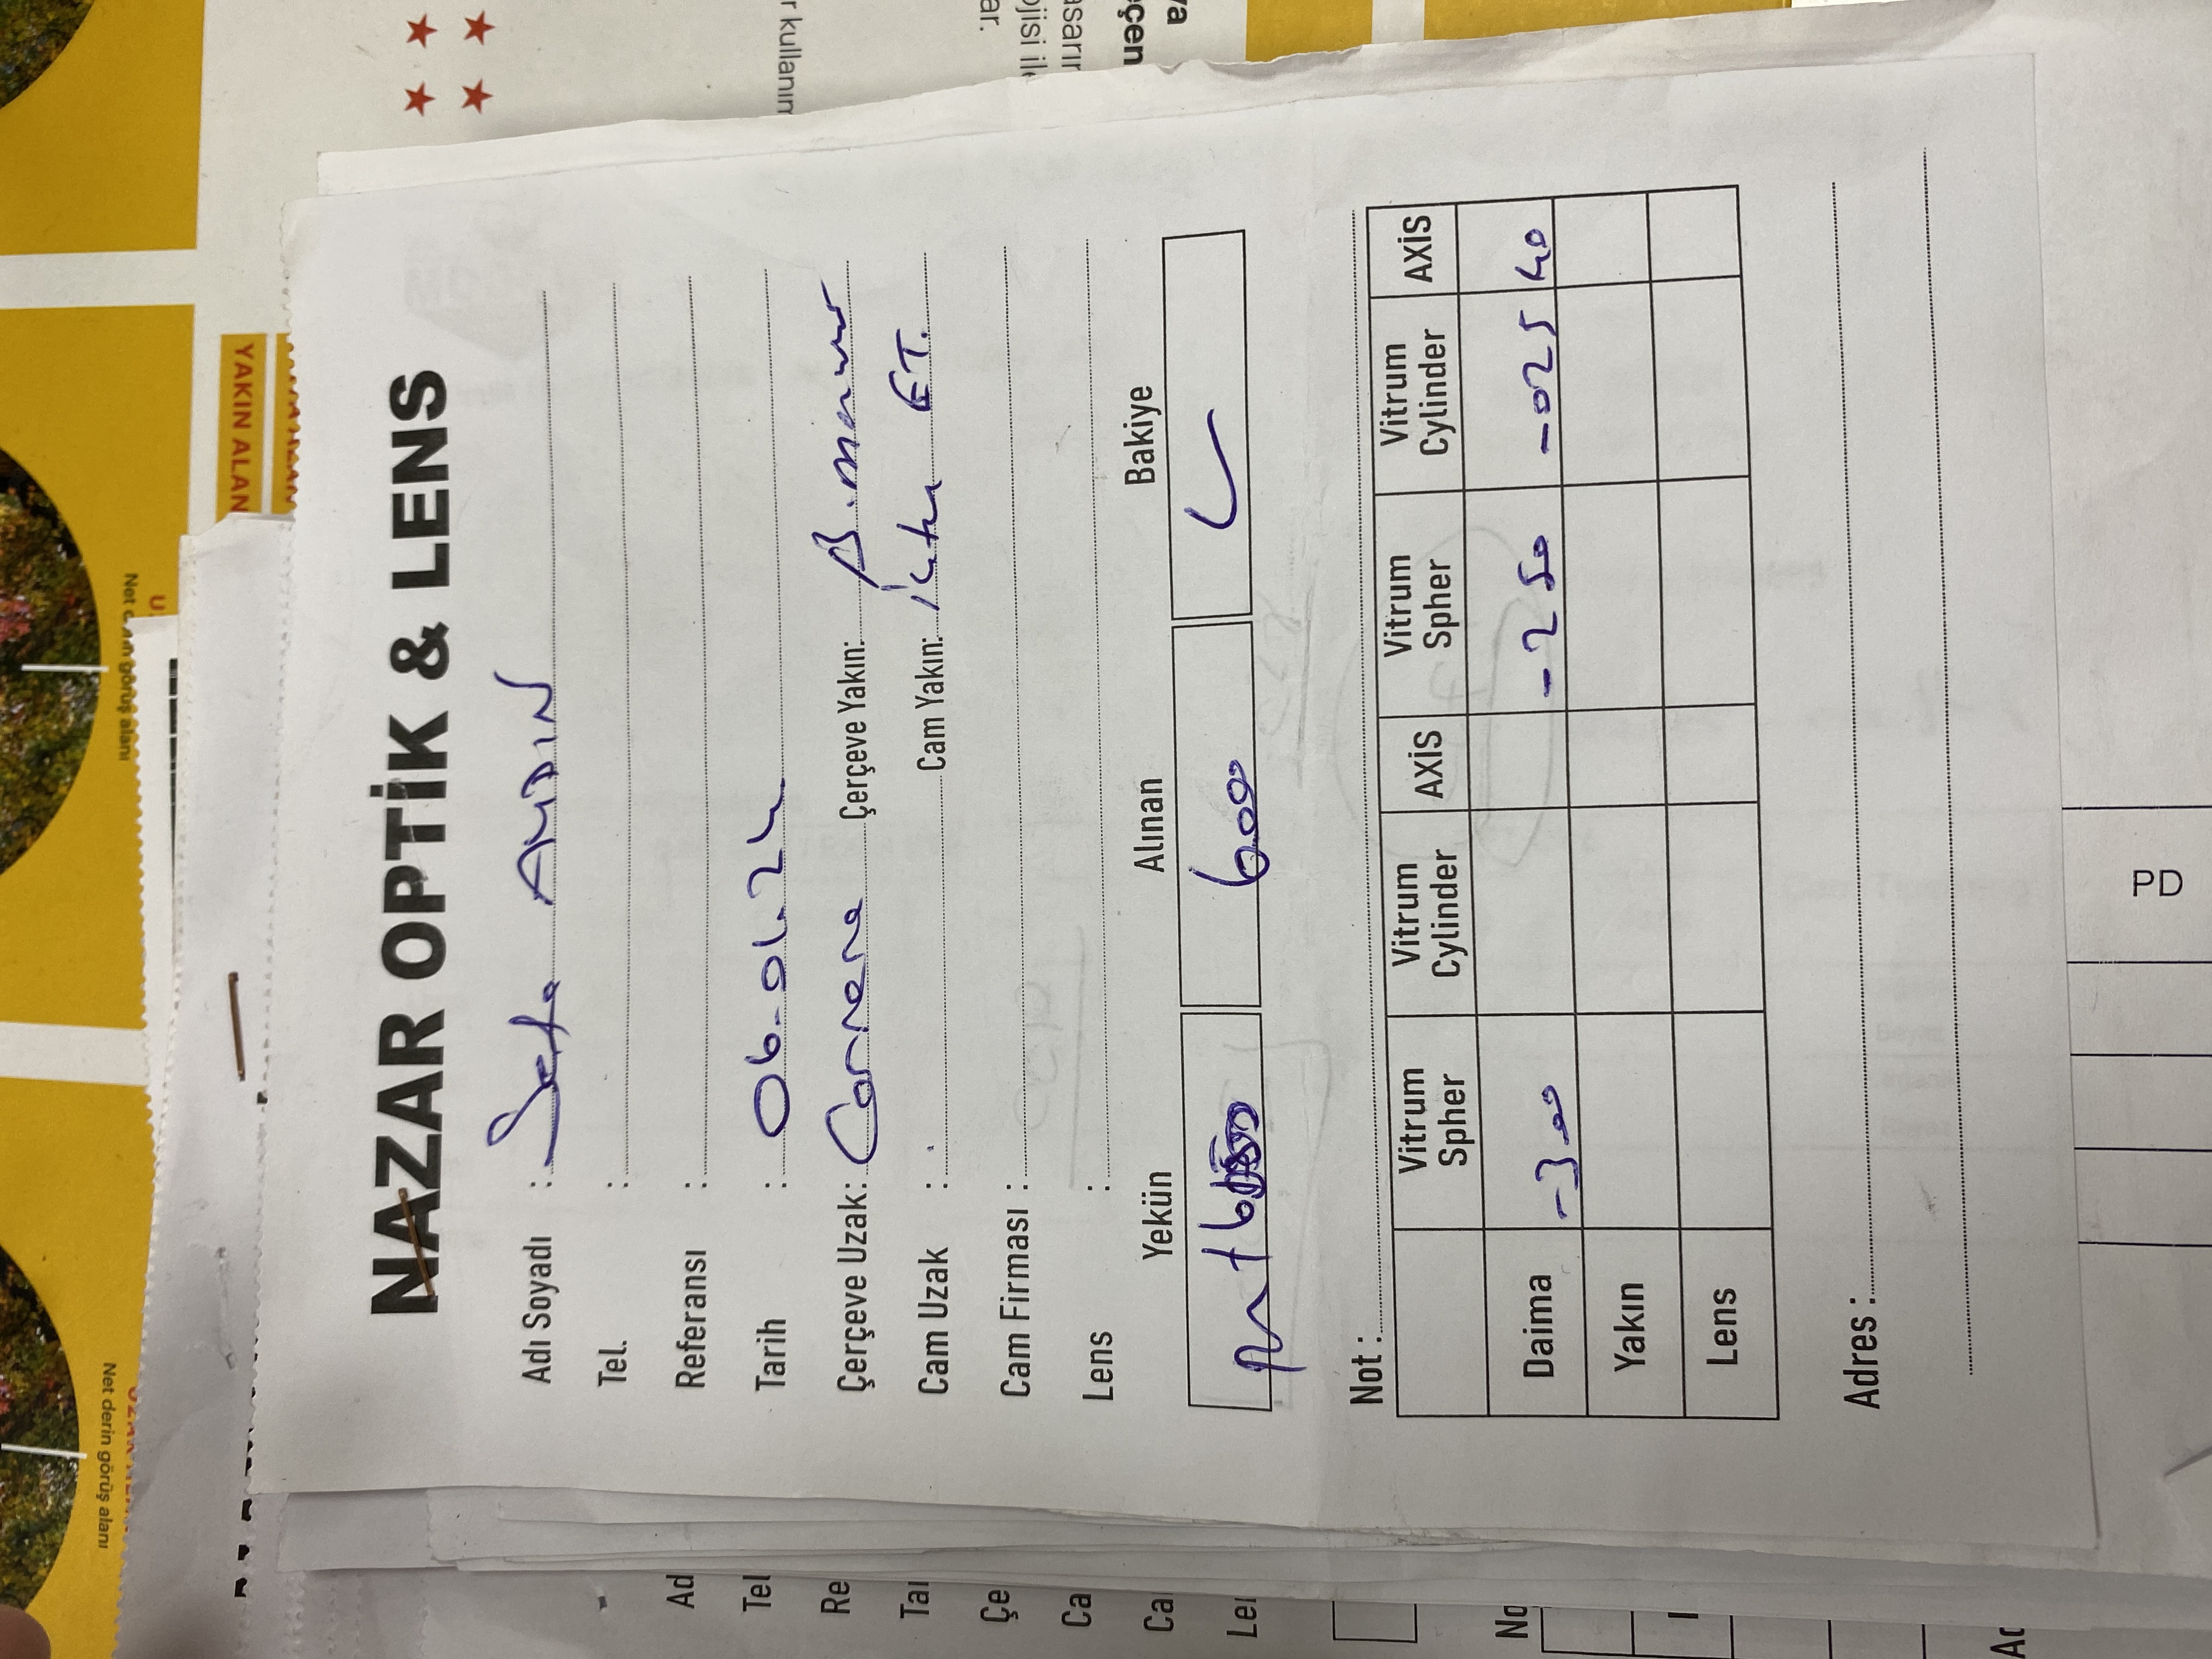 Net derin görüş alanı
Net derin görüş alanı
YAKIN ALAN
NAZAR OPTİK & LENS
Adı Soyadı : Sefa AYDIN
Tel. :
Referansı :
Tarih : 06.01.24
Çerçeve Uzak: Carrera Çerçeve Yakın:
Cam Uzak : Cam Yakın: ET.
Cam Firması :
Lens :
Yekün Alınan Bakiye
6000
Not :
Vitrum Spher Vitrum Cylinder AXİS Vitrum Spher Vitrum Cylinder AXİS
Daima -300 -250 -025 40
Yakın
Lens
Adres :
PD